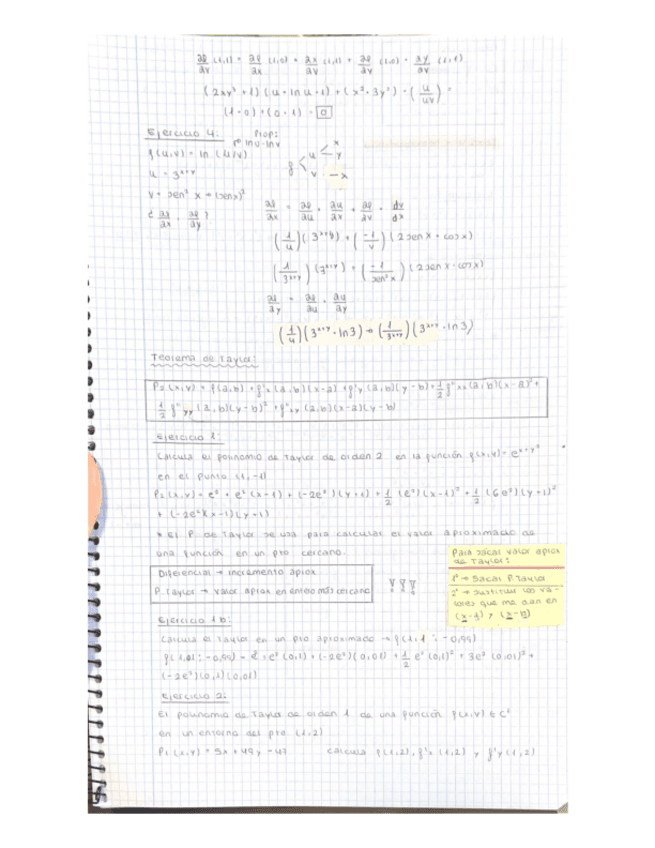 ∂f/∂v (1,1) = ∂f/∂x (1,0) · ∂x/∂v (1,1) + ∂f/∂y (1,0) · ∂y/∂v (1,1)
(2xy³+1)(u·ln u·1) + (x²·3y²) · (u/uv) =
(1·0)+(0·1) = 0
Ejercicio 4:
Prop:
ln u - ln v
f(u,v) = ln (u/v)
u = 3^(x+y)
v = sen² x → (senx)²
¿ ∂f/∂x , ∂f/∂y ?
f u x y
v - x
∂f/∂x = ∂f/∂u · ∂u/∂x + ∂f/∂v · dv/dx
(1/u)(3^(x+y)) + (-1/v)(2sen x · cosx)
(1/3^(x+y))(3^(x+y)) + (-1/sen²x)(2sen x · cosx)
∂f/∂y = ∂f/∂u · ∂u/∂y
(1/u)(3^(x+y) · ln3) → (1/3^(x+y))(3^(x+y) · ln3)
Teorema de Taylor:
P₂(x,y) = f(a,b) + f'x (a,b)(x-a) + f'y (a,b)(y-b) + 1/2 f''xx (a,b)(x-a)² +
1/2 f''yy (a,b)(y-b)² + f''xy (a,b)(x-a)(y-b)
Ejercicio 1:
Calcula el polinomio de Taylor de orden 2 en la función f(x,y) = e^(x+y²)
en el punto (1,-1)
P₂(x,y) = e² + e²(x-1) + (-2e²)(y+1) + 1/2 (e²)(x-1)² + 1/2 (6e²)(y+1)²
+ (-2e²)(x-1)(y+1)
* El P. de Taylor se usa para calcular el valor aproximado de
una función en un pto cercano.
Diferencial → incremento aprox
P. Taylor → valor aprox en entorno más cercano
!!!
Para sacar valor aprox
de Taylor:
1º → Sacar P. Taylor
2º → sustituir los va-
lores que me dan en
(x-1) y (x-b)
Ejercicio 1b:
Calcula el Taylor en un pto aproximado → f(1,1 ; -0,99)
f(1,01 ; -0,99) = e² + e²(0,1) + (-2e²)(0,01) + 1/2 e²(0,1)² + 3e²(0,01)² +
(-2e²)(0,1)(0,01)
Ejercicio 2:
El polinomio de Taylor de orden 1 de una función f(x,y) ∈ C¹
en un entorno del pto (1,2)
P₁(x,y) = 5x + 49y - 47 calcula f(1,2), f'x (1,2) y f'y (1,2)